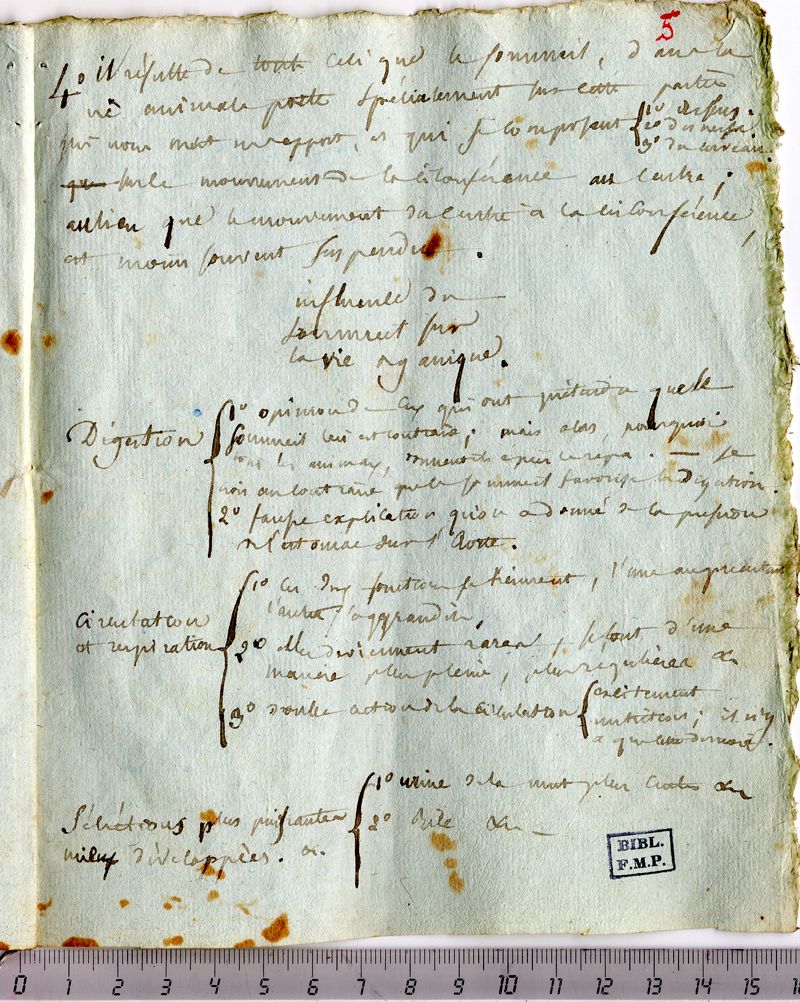 5
4° il résulte de tout celi que le sommeil, dans la
vie animale porte spécialement sur cette partie
qui nous met en rapport, et qui se composent { 1° des sens.
2° des nerfs.
3° du cerveau.
que sur le mouvement de la circonférence au centre;
au lieu que le mouvement du centre à la circonférence,
est moins souvent suspendu.
influence du
sommeil sur
la vie organique.
Digestion { 1° opinion de ceux qui ont prétendu que le
sommeil lui est contraire; mais alors, pourquoi
tous les animaux, dorment ils après le repas. — je
crois au contraire que le sommeil favorise la digestion.
2° fausse explication qu'on a donné de la pression
de l'estomac sur l'aorte.
circulation
et respiration { 1° ces deux fonctions se tiennent, l'une augmentant
l'autre s'aggrandit,
2° elles deviennent rares, se font d'une
manière plus pleine, plus régulière &c
3° double action de la circulation { excitement
nutrition; il n'y
a que cette dernière.
Sécrétions plus puissantes
mieux développées. &c. { 1° urine de la nuit plus cuite &c
2° bile &c —
BIBL.
F.M.P.
0 1 2 3 4 5 6 7 8 9 10 11 12 13 14 15